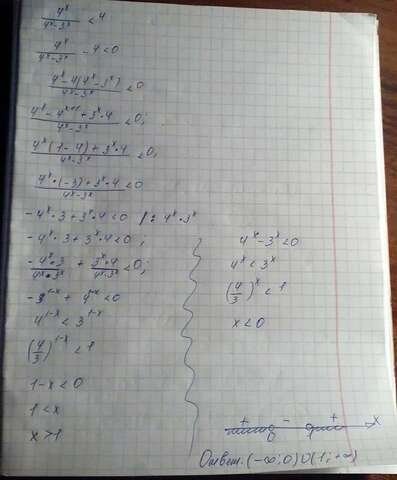 4^x/(4^x-3^x) < 4
4^x/(4^x-3^x) - 4 < 0
(4^x-4(4^x-3^x))/(4^x-3^x) < 0
(4^x-4^{x+1}+3^x·4)/(4^x-3^x) < 0;
(4^x(1-4)+3^x·4)/(4^x-3^x) < 0;
(4^x·(-3)+3^x·4)/(4^x-3^x) < 0
-4^x·3+3^x·4<0 /: 4^x·3^x
-4^x·3+3^x·4<0;
-(4^x·3)/(4^x·3^x) + (3^x·4)/(4^x·3^x) < 0;
-3^{1-x} + 4^{1-x} < 0
4^{1-x} < 3^{1-x}
(4/3)^{1-x} < 1
1-x<0
1<x
x>1
4^x-3^x<0
4^x<3^x
(4/3)^x < 1
x<0
+ - + x
0 1
Ответ: (-∞;0)U(1;+∞)